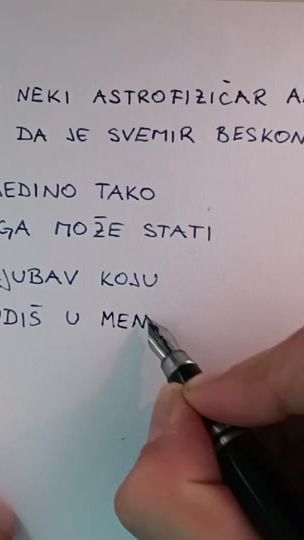 NEKI ASTROFIZIČAR A
DA JE SVEMIR BESKON
JEDINO TAKO
GA MOŽE STATI
JUBAV KOJU
DIŠ U MEN